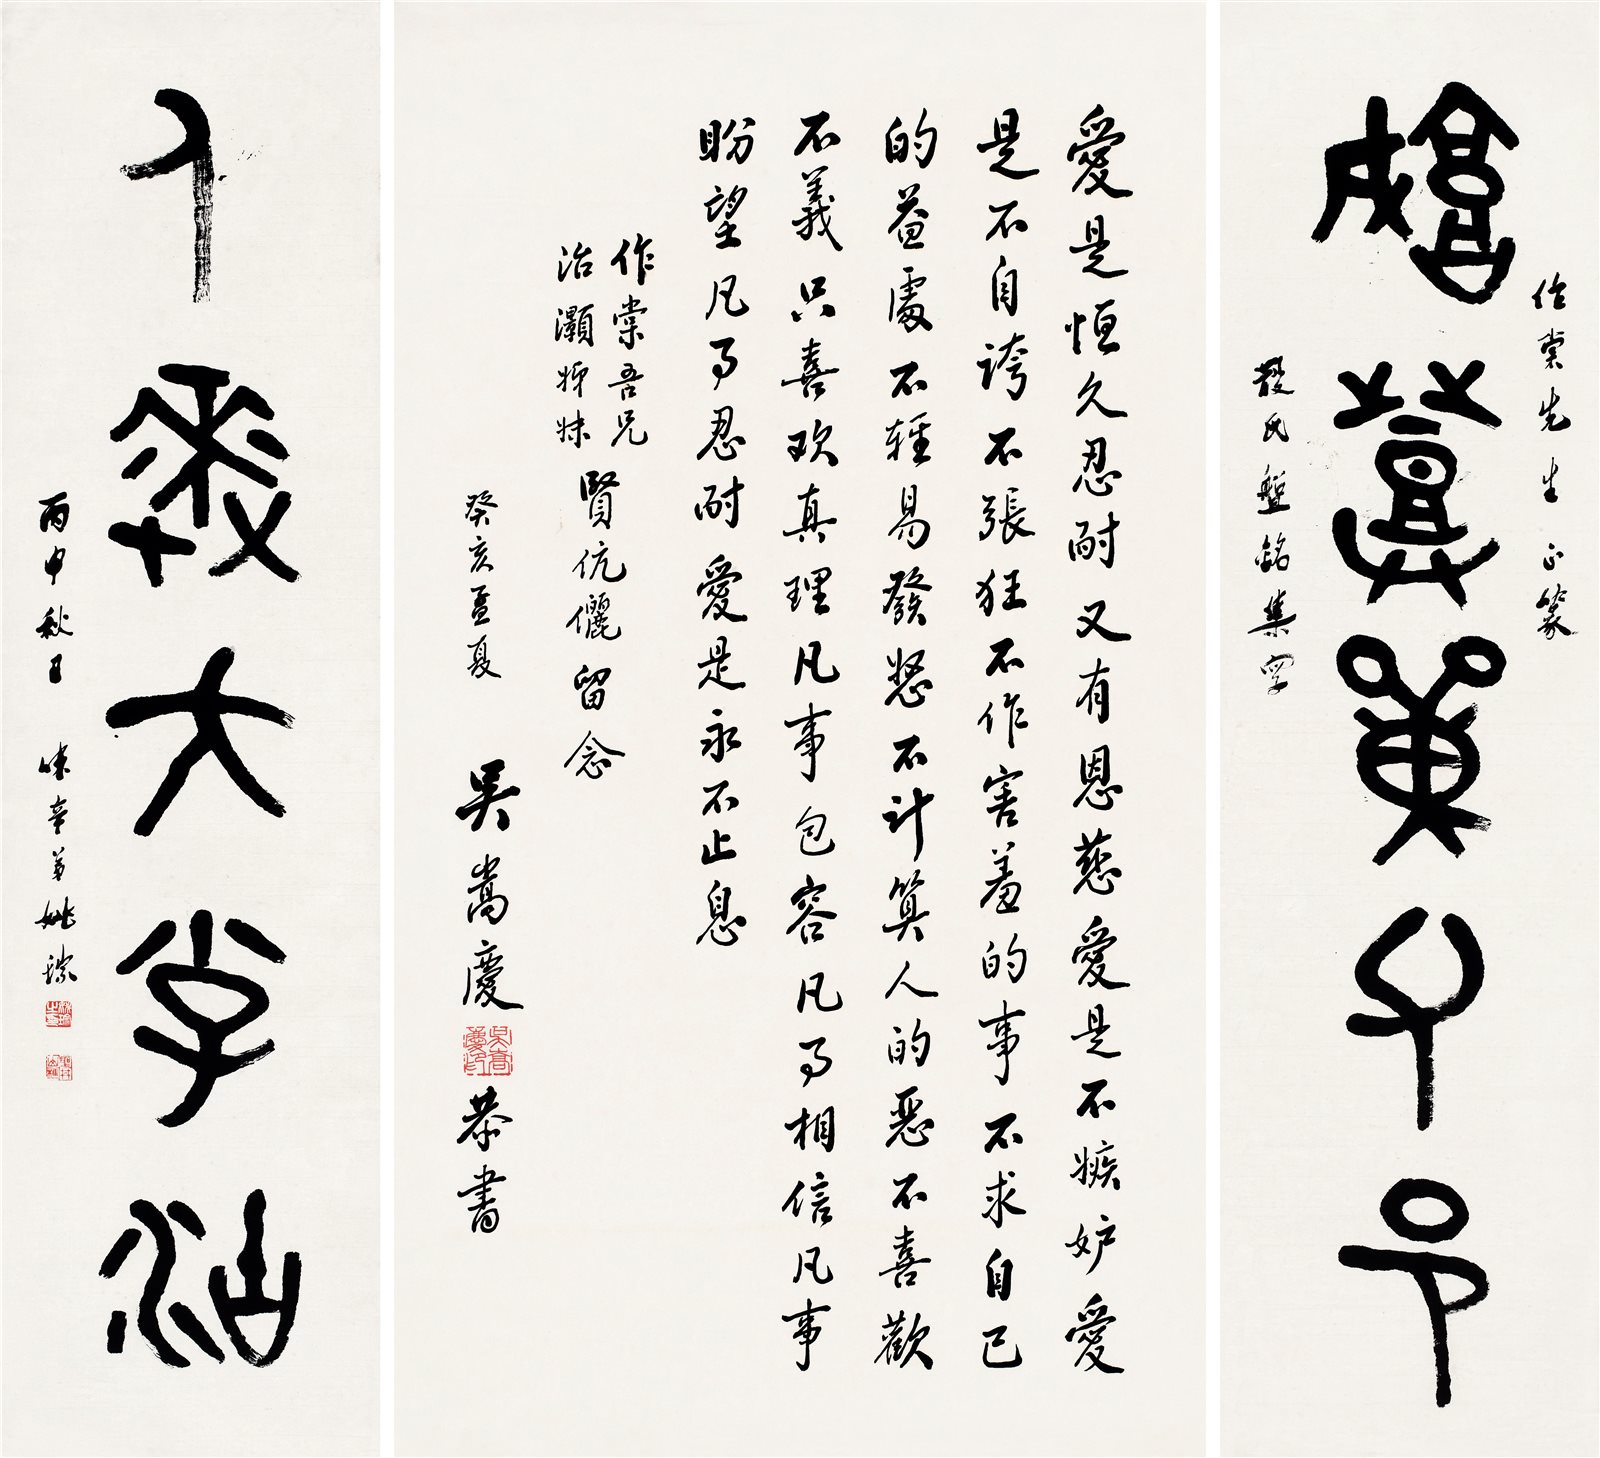 作棠先生正篆
散氏盤銘集字
愛是恒久忍耐又有恩慈愛是不嫉妒愛
是不自誇不張狂不作害羞的事不求自己
的益處不輕易發怒不計算人的惡不喜歡
不義只喜欢真理凡事包容凡事相信凡事
盼望凡事忍耐愛是永不止息
作棠吾兄
治灝姊妹
賢伉儷留念
癸亥孟夏 吳嵩慶恭書
吳嵩慶印
大
丙申秋日 味辛弟姚琮